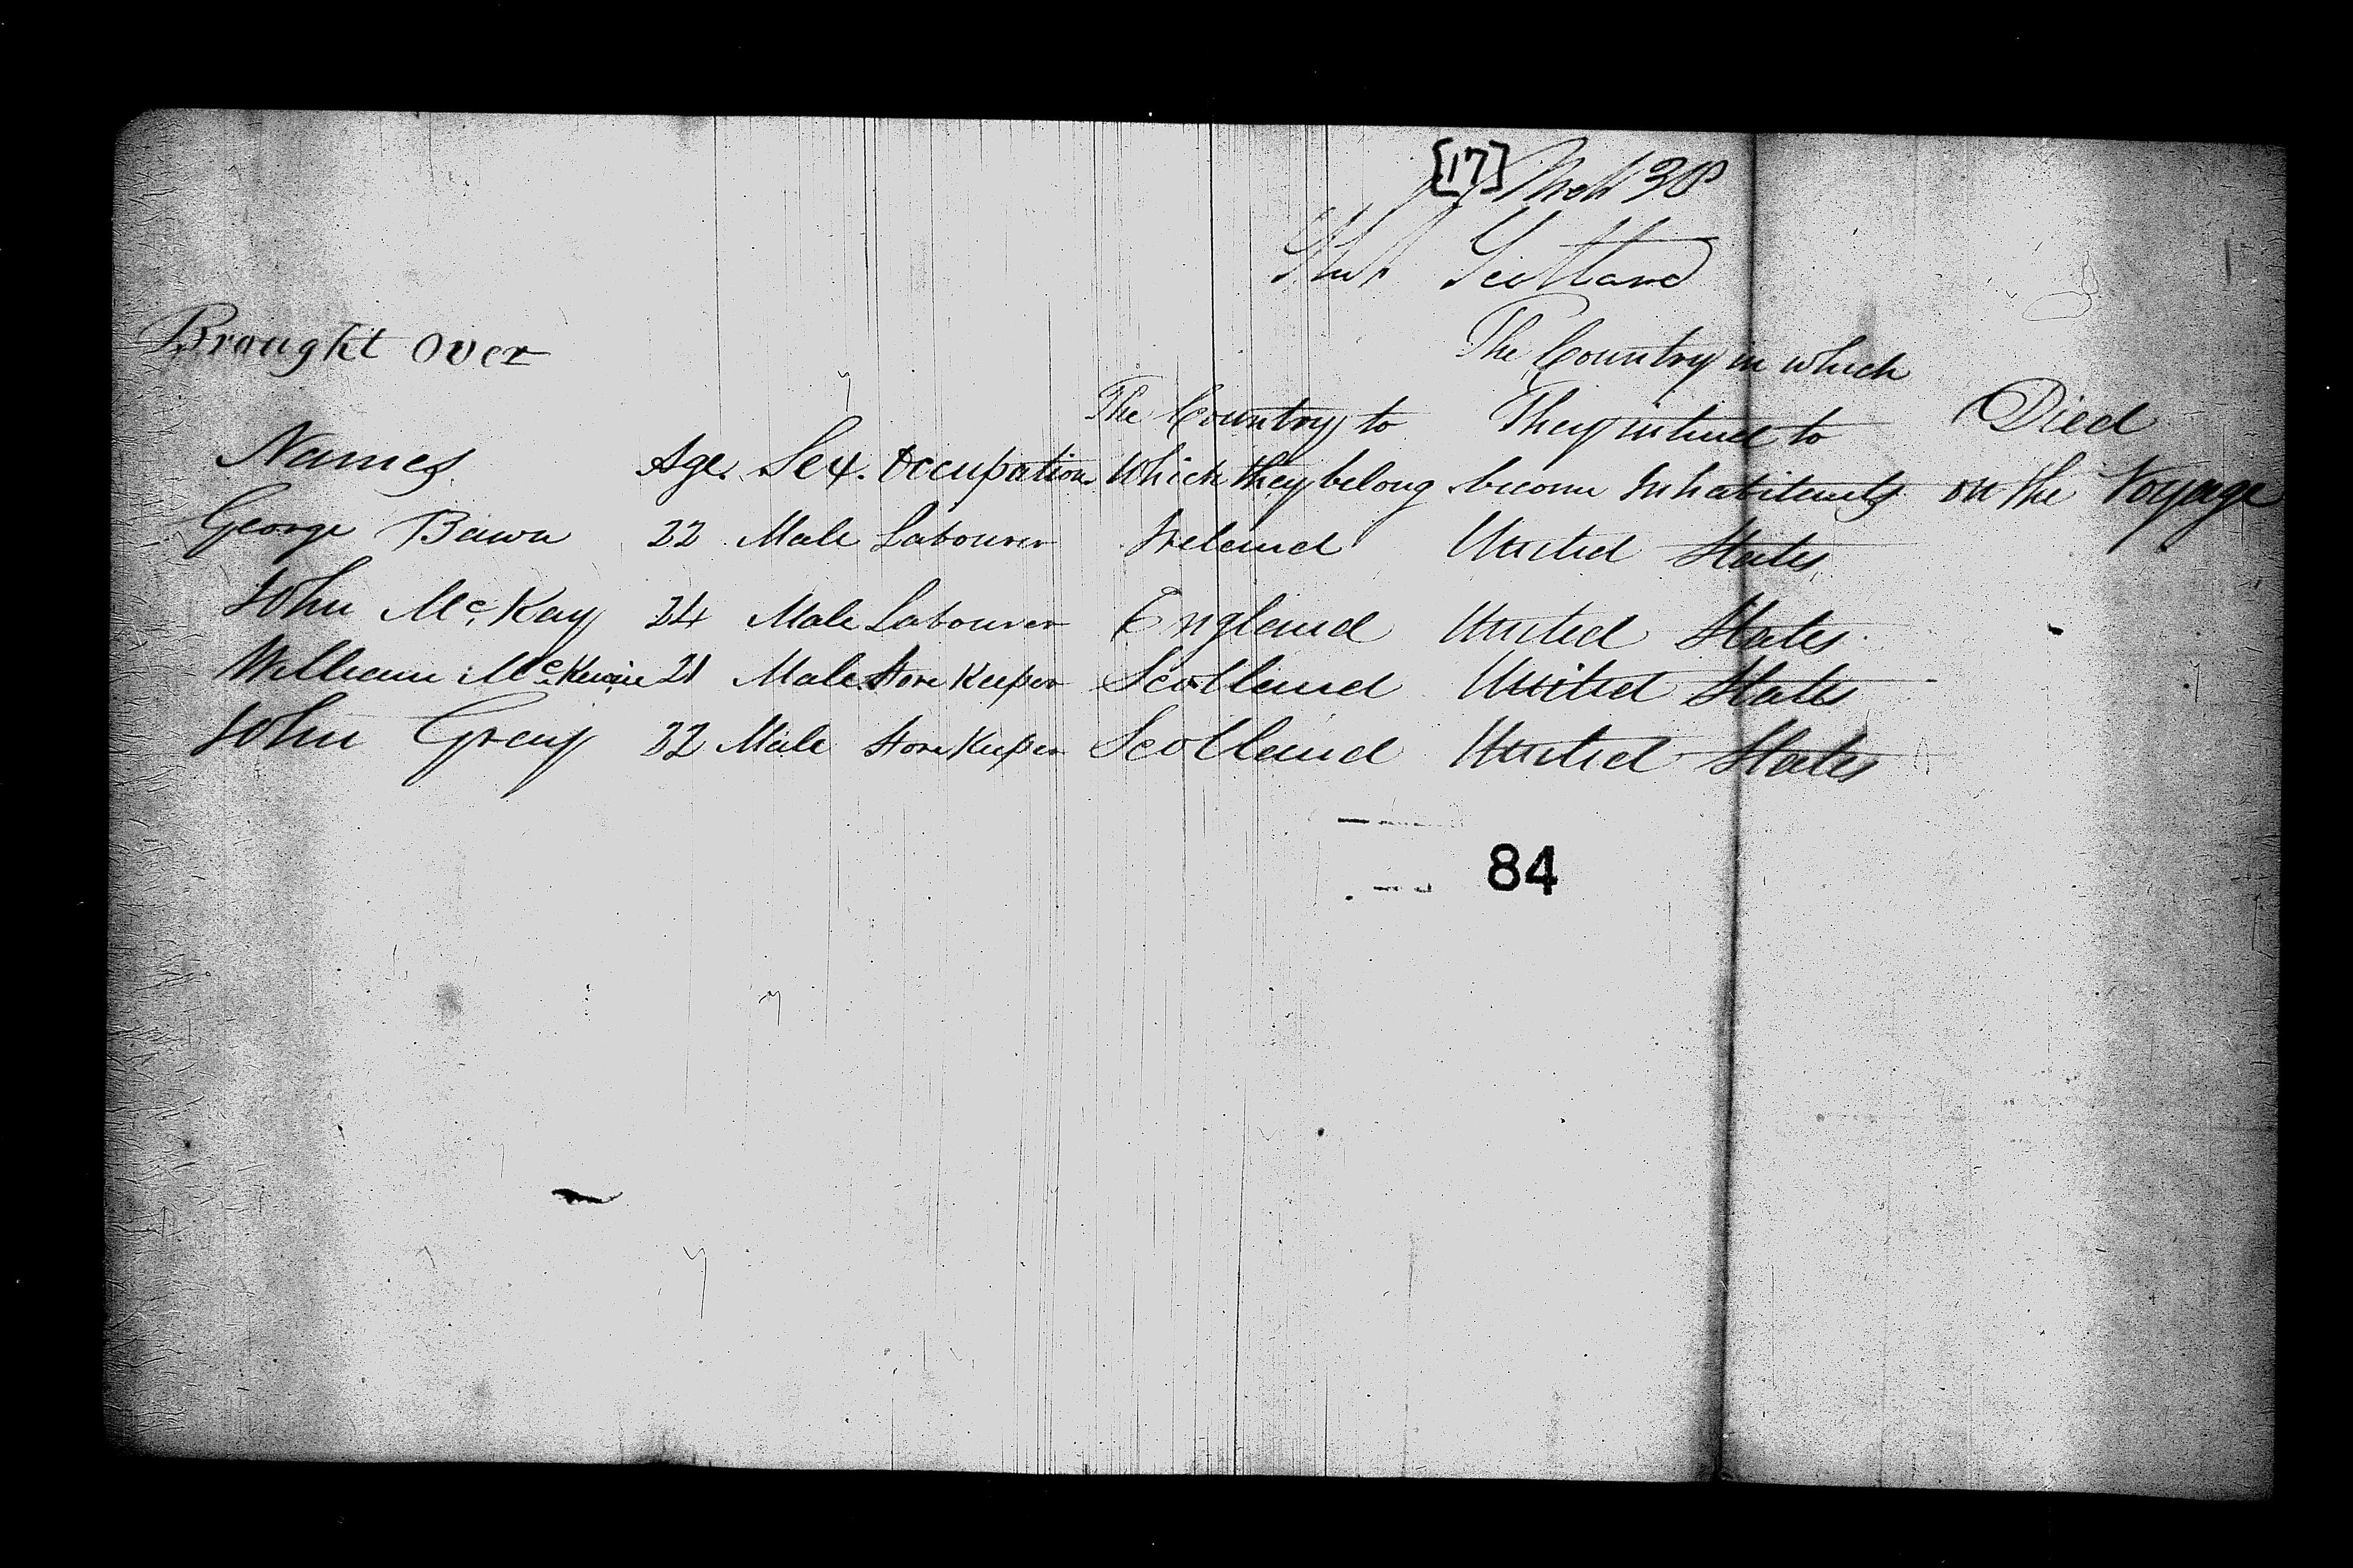 [17]
Scotland
Brought over
The Country in which
The Country to They intend to Died
Names Age. Sex. Occupation. Which they belong become Inhabitants on the Voyage
George Bawn 22 Male Labourer Ireland United States
John McKay 24 Male Labourer England United States
William 21 Male Store Keeper Scotland United States
John Gray 22 Male Store Keeper Scotland United States
84